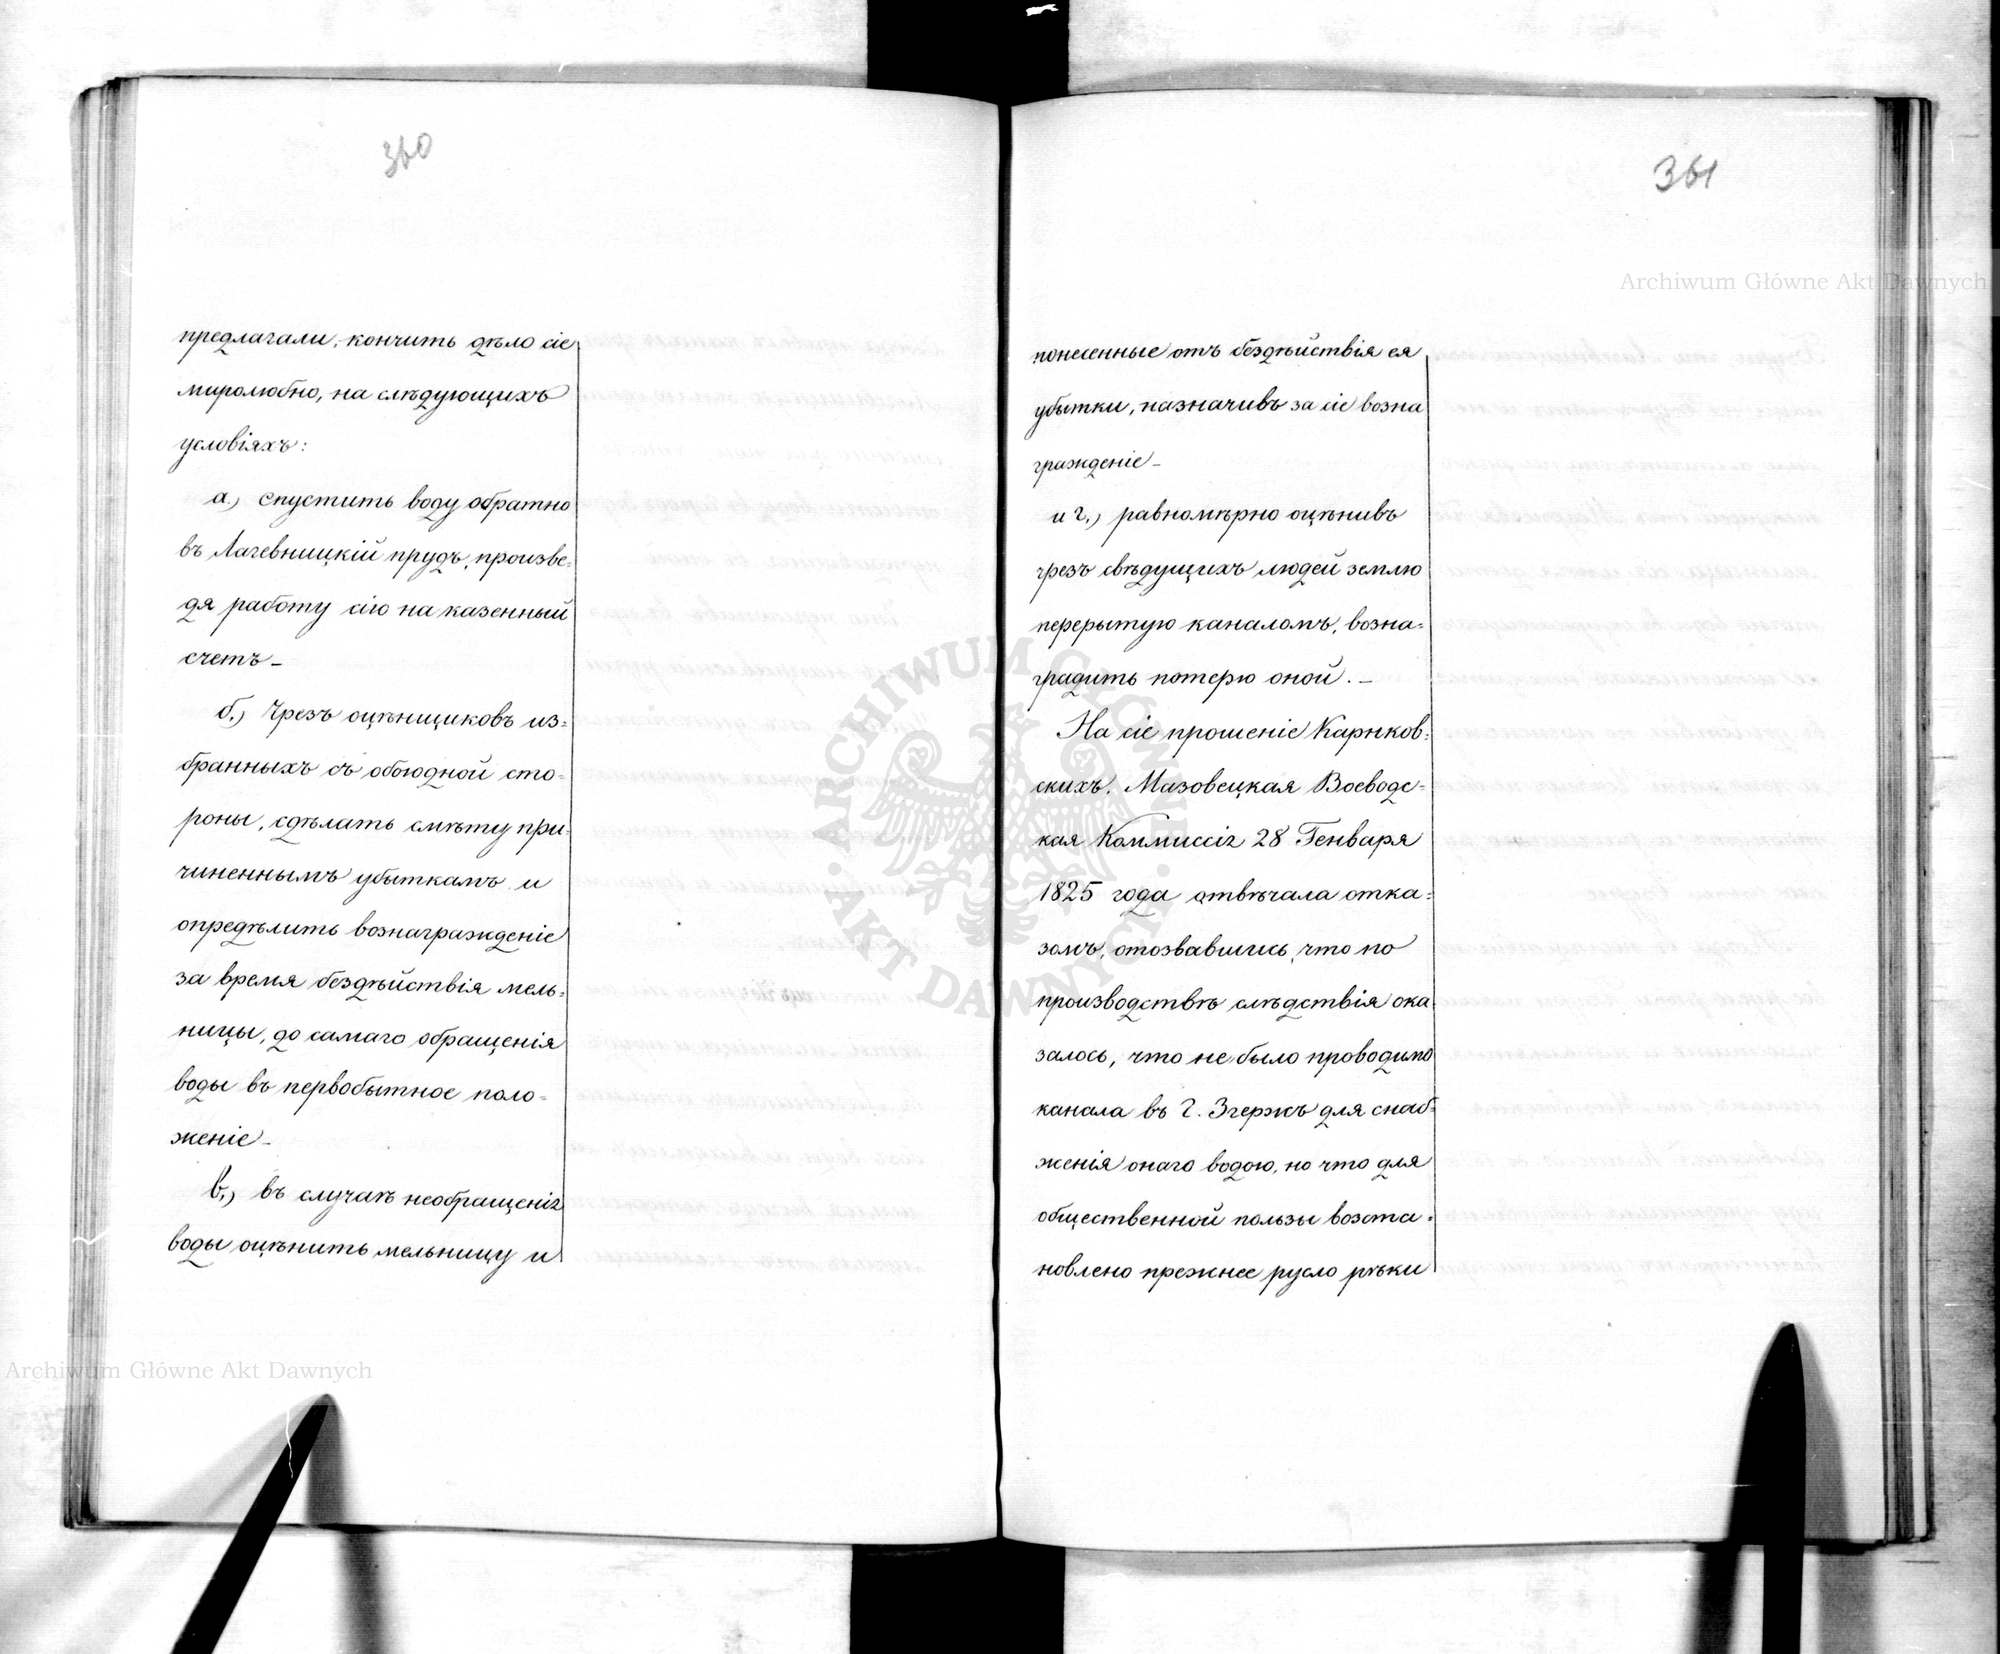 360
предлагали, кончить дѣло сіе
миролюбно, на слѣдующихъ
условіяхъ:
а.) спустить воду обратно
въ Лагевницкій прудъ, произве=
дя работу сію на казенный
счетъ_
б.) Чрезъ оцѣнщиковъ из=
бранныхъ съ обоюдной сто=
роны, сдѣлать смѣту при=
чиненнымъ убыткамъ и
опредѣлить вознагражденіе
за время бездѣйствія мель=
ницы, до самаго обращенія
воды въ первобытное поло=
женіе_
в.) въ случаѣ необращенія
воды оцѣнить мельницу и
361
понесенные отъ бездѣйствія ея
убытки, назначивъ за сіе возна
гражденіе_
и г.) равномѣрно оцѣнивъ
чрезъ свѣдущихъ людей землю
перерытую каналомъ, возна=
градить потерю оной._
На сіе прошеніе Карнков=
скихъ. Мазовецкая Воеводс=
кая Коммиссія 28 Генваря
1825 года отвѣчала отка=
зомъ, отозвавшись, что по
производствѣ слѣдствія ока
залось, что не было проводимо
канала въ Г. Згержъ для снаб=
женія онаго водою, но что для
общественной пользы возста=
новлено прежнее русло рѣки
Archiwum Główne Akt Dawnych
Archiwum Główne Akt Dawnych
ARCHIWUM GŁÓWNE
AKT DAWNYCH